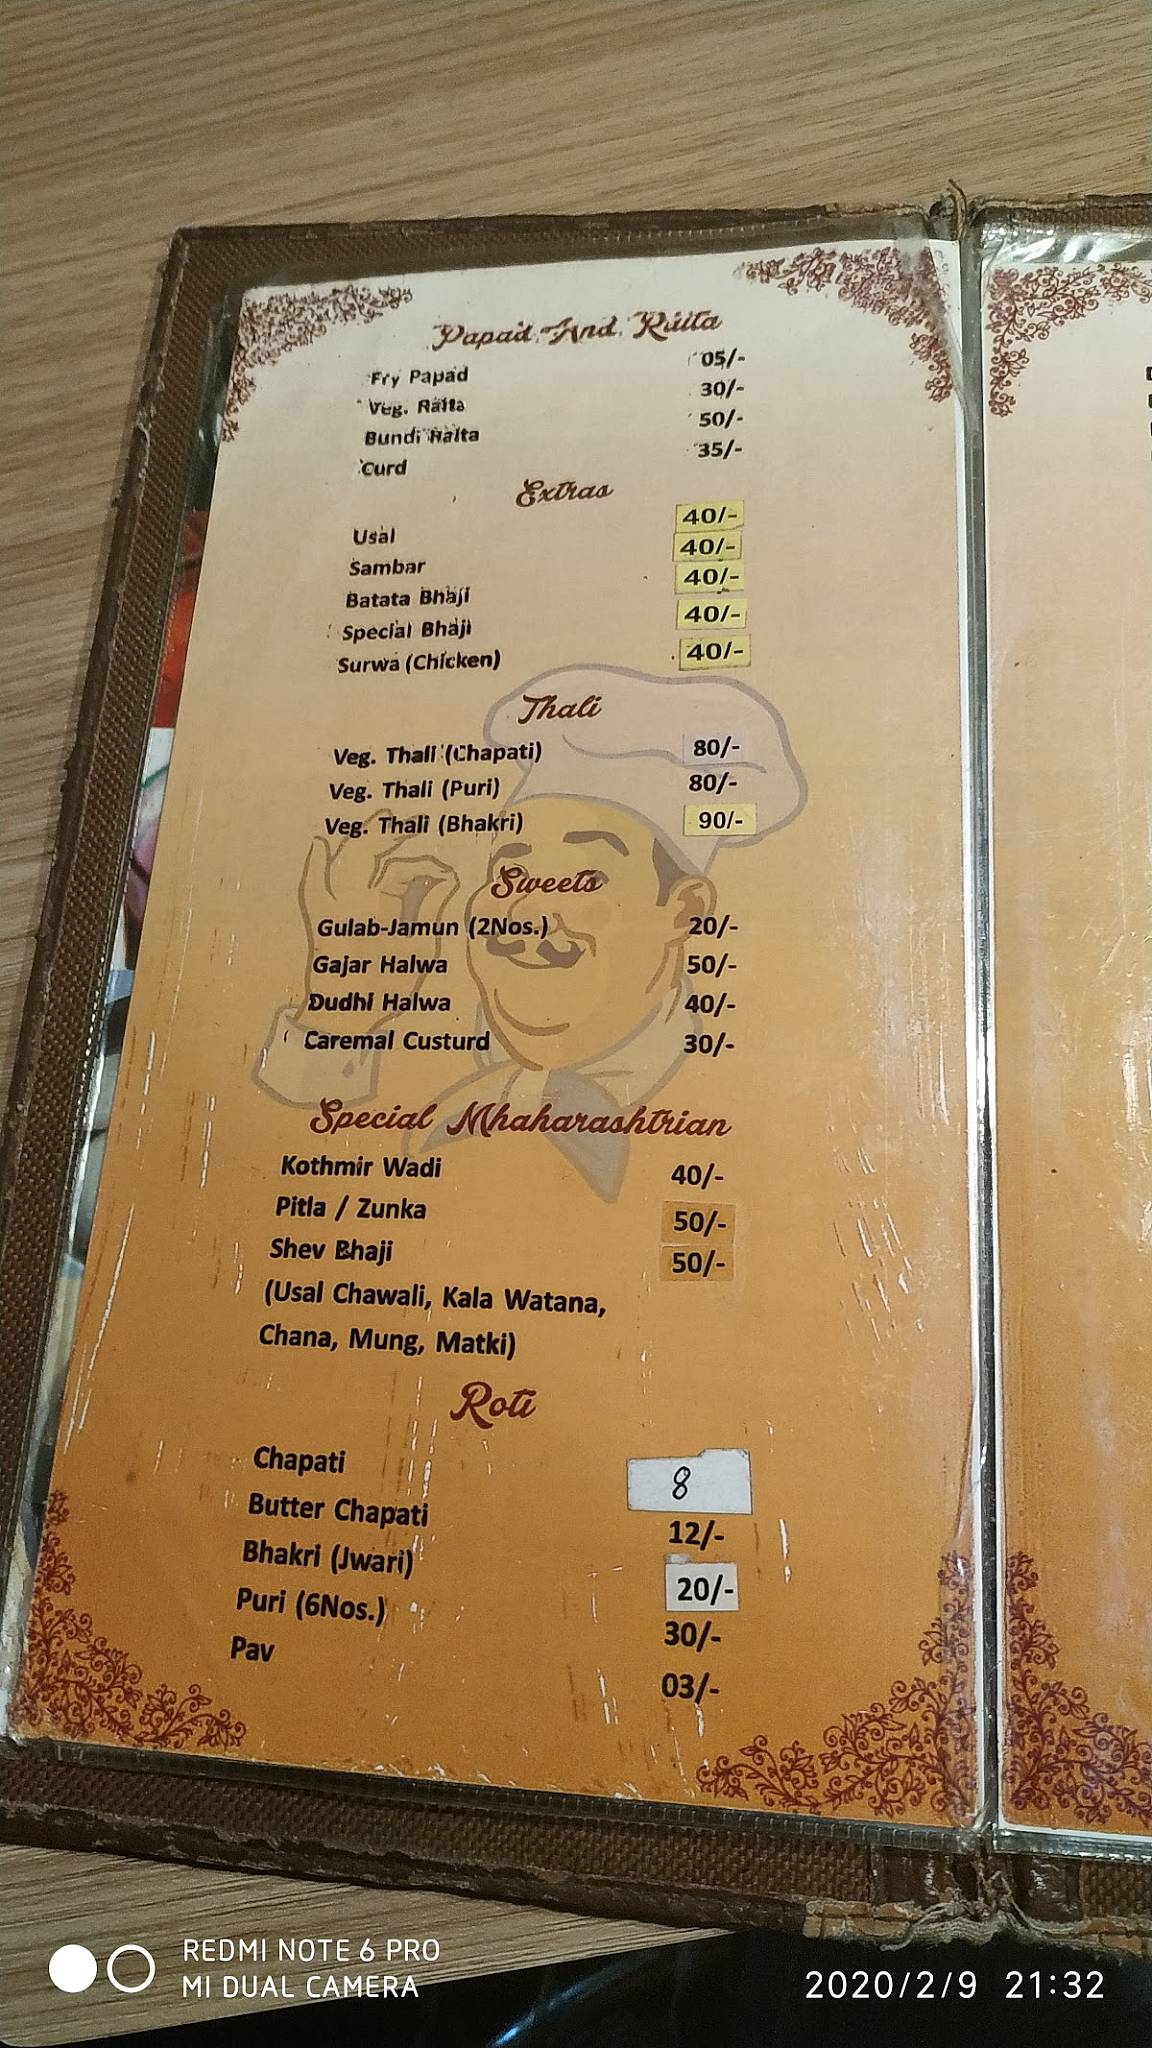 Papad And Raita
Fry Papad 05/-
Veg. Raita 30/-
Bundi Raita 50/-
Curd 35/-
Extras
Usal 40/-
Sambar 40/-
Batata Bhaji 40/-
Special Bhaji 40/-
Surwa (Chicken) 40/-
Thali
Veg. Thali (Chapati) 80/-
Veg. Thali (Puri) 80/-
Veg. Thali (Bhakri) 90/-
Sweets
Gulab-Jamun (2Nos.) 20/-
Gajar Halwa 50/-
Dudhi Halwa 40/-
Caremal Custurd 30/-
Special Mhaharashtrian
Kothmir Wadi 40/-
Pitla / Zunka 50/-
Shev Bhaji 50/-
(Usal Chawali, Kala Watana,
Chana, Mung, Matki)
Roti
Chapati 8
Butter Chapati 12/-
Bhakri (Jwari) 20/-
Puri (6Nos.) 30/-
Pav 03/-
REDMI NOTE 6 PRO
MI DUAL CAMERA
2020/2/9 21:32